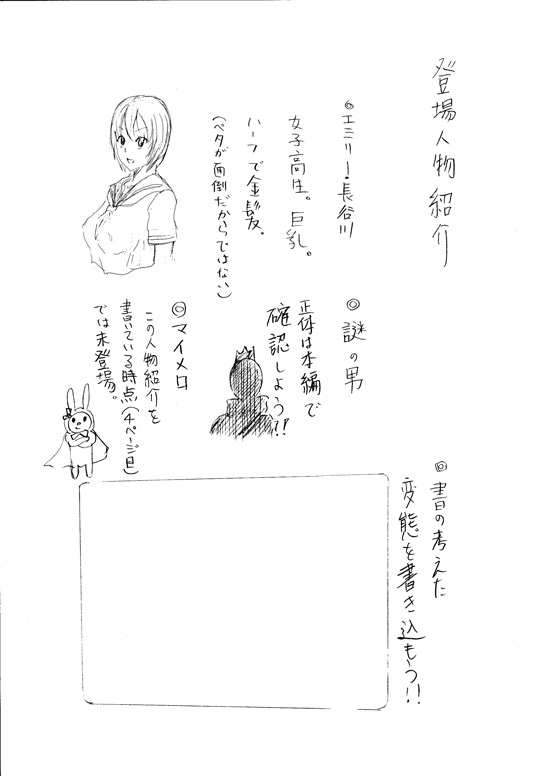 登場人物紹介
◎エミリー・長谷川
女子高生。巨乳。
ハーフで金髪。
(ベタが面倒だからではない)
◎謎の男
正体は本編で
確認しよう!!
◎マイメロ
この人物紹介を
書いている時点(4ページ目)
では未登場。
◎君の考えた
変態を書き込もう!!